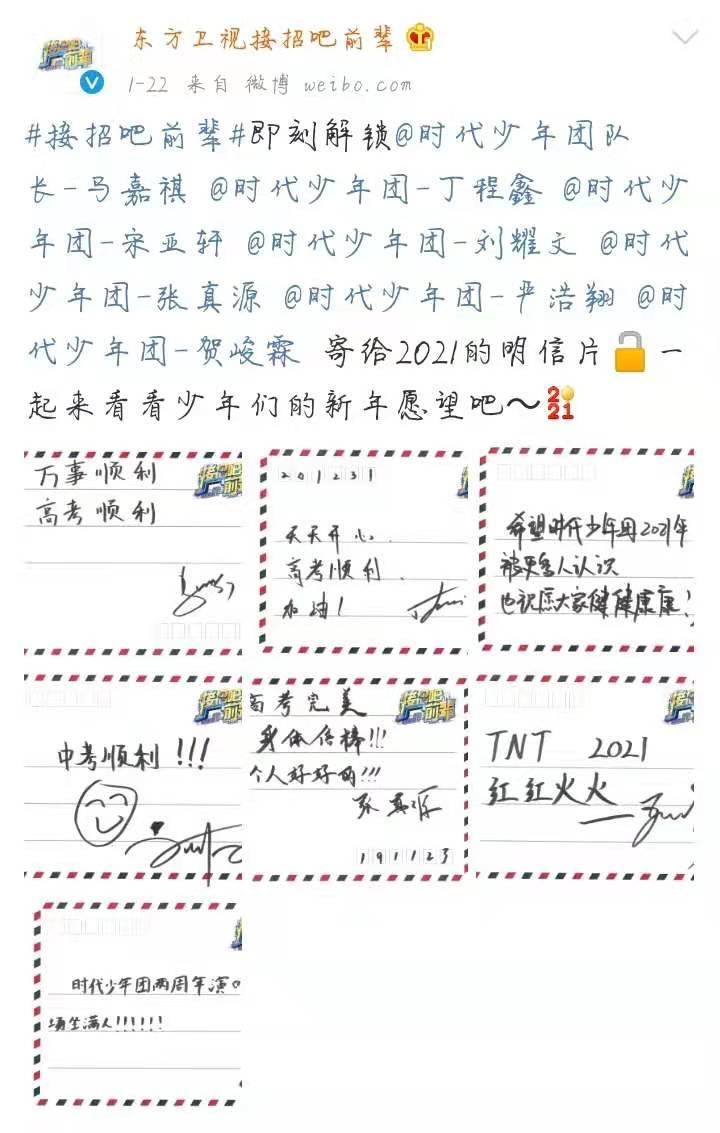 东方卫视接招吧前辈
1-22 来自 微博 weibo.com
#接招吧前辈#即刻解锁@时代少年团队
长-马嘉祺 @时代少年团-丁程鑫 @时代少
年团-宋亚轩 @时代少年团-刘耀文 @时代
少年团-张真源 @时代少年团-严浩翔 @时
代少年团-贺峻霖 寄给2021的明信片 一
起来看看少年们的新年愿望吧～
万事顺利
高考顺利
201231
天天开心
高考顺利
加油！
希望时代少年团2021年
被更多人认识
也祝愿大家健健康康！
中考顺利！！！
高考完美
身体倍棒!!!
个人好好的!!!
张真源
191123
TNT 2021
红红火火
时代少年团两周年演
坐满人!!!!!!